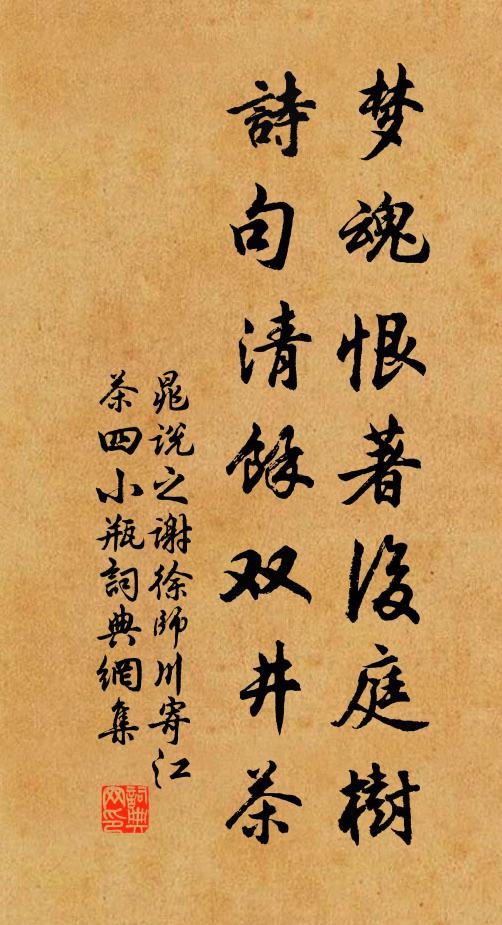 梦魂恨著後庭樹
詩句清餘双井茶
晁说之谢徐师川寄江
茶四小瓶詞典網集
詞典網印